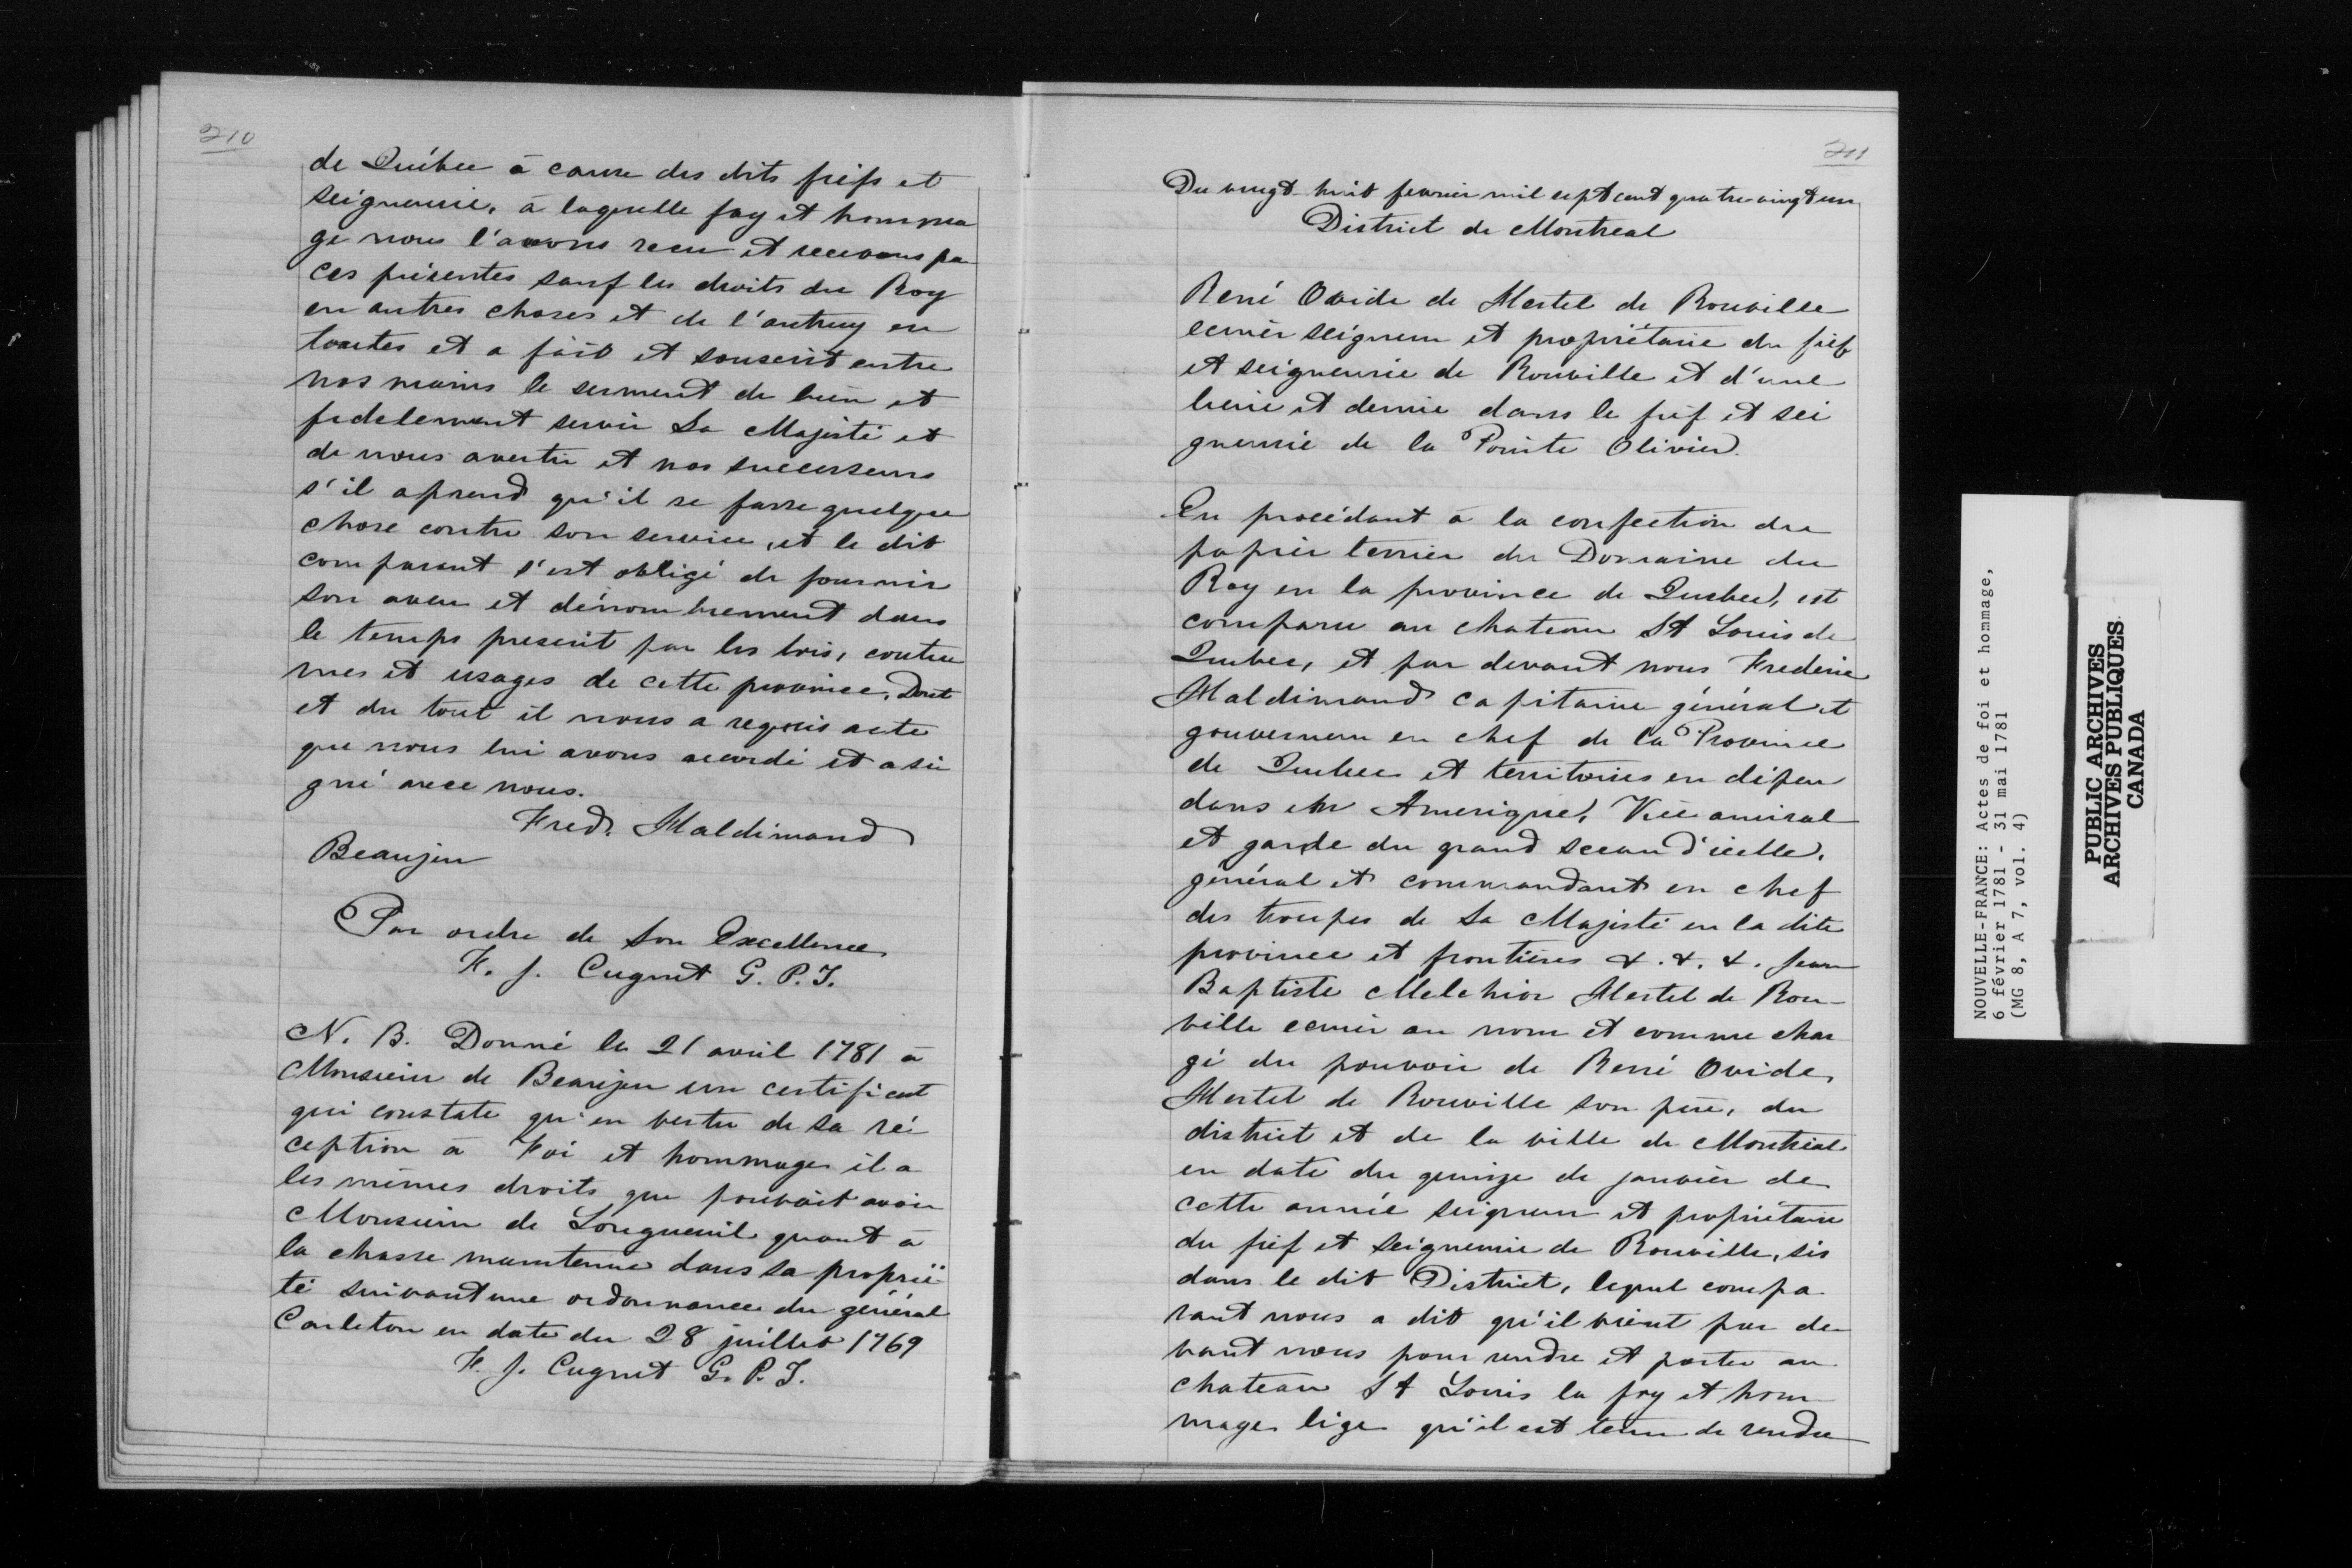 210
de Québec à cause des dits fiefs et
seigneurie, à laquelle foy et homma
ge nous l'avons recu et recevons pa
ces présentes sauf les droits du Roy
en autres choses et de l'autruy en
toutes et a fait et souscrit entre
nos mains le serment de bien et
fidelement servir Sa Majesté et
de nous avertir et nos successeurs
s'il aprend qu'il se fasse quelque
chose contre son service, et le dit
comparant s'est obligé de fournir
son aveu et dénombrement dans
le temps prescrit par les lois, coutu
mes et usages de cette province, Dont
et du tout il nous a requis acte
que nous lui avons accordé et a si
gné avec nous.
Fred. Haldimand
Beaujeu
Par ordre de Son Excellence
F. J. Cugnet G. P. T.
N. B. Donné le 21 avril 1781 à
Monsieur de Beaujeu un certificat
qui constate qu'en vertu de sa ré
ception à Foi et hommage il a
les mêmes droits que pouvait avoir
Monsieur de Longueuil quant à
la chasse maintenue dans sa proprié
té suivant une ordonnance du général
Carleton en date du 28 juillet 1769
F. J. Cugnet G. P. T.
211
Du vingt huit fevrier mil sept cent quatre vingt un
District de Montreal
René Ovide de Hertel de Rouville
ecuier seigneur et propriétaire du fief
et seigneurie de Rouville et d'une
lieue et demie dans le fief et sei
gneurie de la Pointe Olivier.
En procédant à la confection du
papier terrier du Domaine du
Roy en la province de Quebec, est
comparu au chateau St Louis de
Quebec, et par devant nous Frederic
Haldimand capitaine général et
gouverneur en chef de la Province
de Quebec et territoires en dépen
dans en Amerique, Vice amiral
et garde du grand sceau d'icelle,
général et commandant en chef
des troupes de Sa Majesté en la dite
province et frontières &. &. &. Jean
Baptiste Melchior Hertel de Rou-
ville ecuier au nom et comme char
gé du pouvoir de René Ovide
Hertel de Rouville son père, du
district et de la ville de Montréal
en date du quinze de janvier de
cette année seigneur et propriétaire
du fief et seigneurie de Rouville, sis
dans le dit District, lequel compa
rant nous a dit qu'il vient par de
vant nous pour rendre et porter au
chateau St Louis la foy et hom
mage lige qu'il est tenu de rendre
NOUVELLE-FRANCE: Actes de foi et hommage,
6 février 1781 - 31 mai 1781
(MG 8, A 7, vol. 4)
PUBLIC ARCHIVES
ARCHIVES PUBLIQUES
CANADA